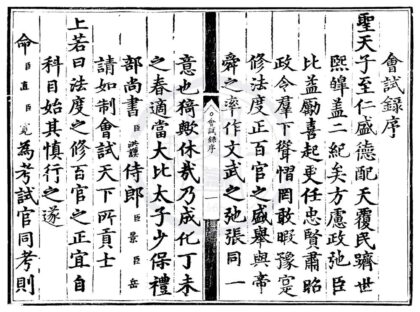 會試錄序
聖天子至仁盛德配天覆民躋世
熙皞蓋二紀矣方慮政弛臣
比益勵喜起更任忠賢肅昭
政令羣下聳慴罔敢暇豫寔
修法度正百官之盛舉與帝
舜之率作文武之弛張同一
會試錄序
一
意也猗歟休哉乃成化丁未
之春適當大比太子少保禮
部尚書臣洪謨侍郎臣景臣岳
請如制會試天下所貢士
上若曰法度之修百官之正宜自
科目始其慎行之遂
命臣直臣寬為考試官同考則